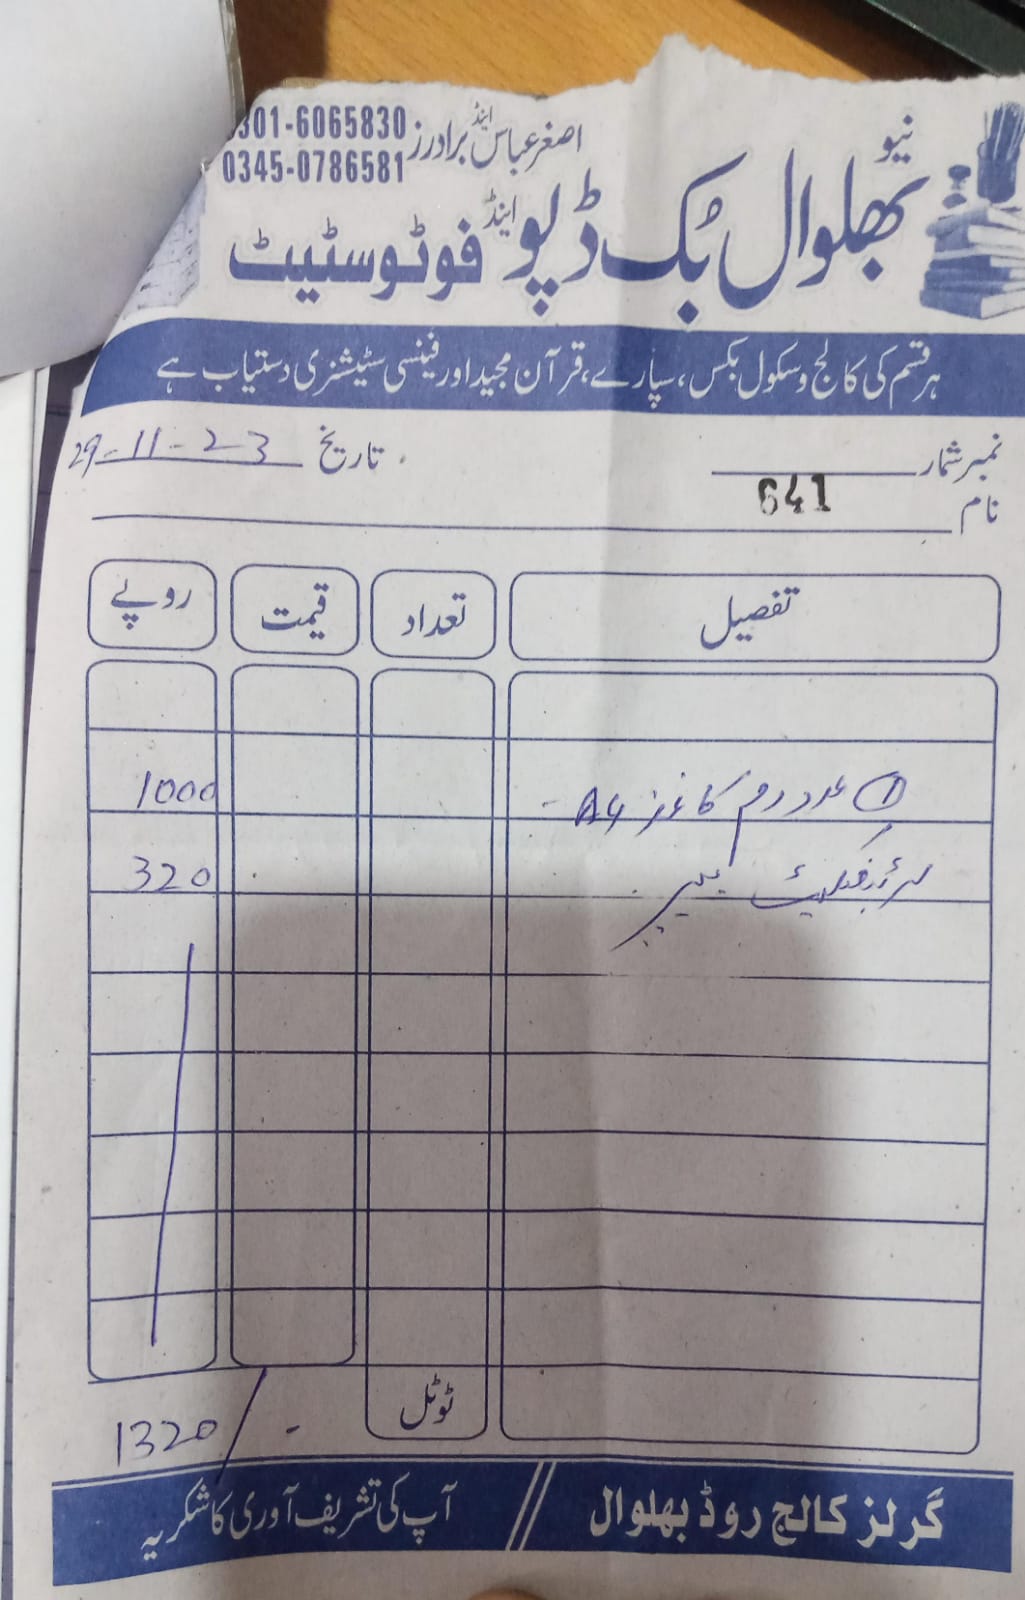 نیو
اصغر عباس اینڈ برادرز
301-6065830
0345-0786581
بھلوال بک ڈپو اینڈ فوٹوسٹیٹ
ہر قسم کی کالج و سکول بکس، سپارے، قرآن مجید اور فینسی سٹیشنری دستیاب ہے
نمبر شمار
تاریخ 29-11-23
641
نام
تفصیل تعداد قیمت روپے
① عدد رم کاغذ A4 - 1000
سرٹیفکیٹ پیپر 320
ٹوٹل 1320/-
گرلز کالج روڈ بھلوال // آپ کی تشریف آوری کا شکریہ